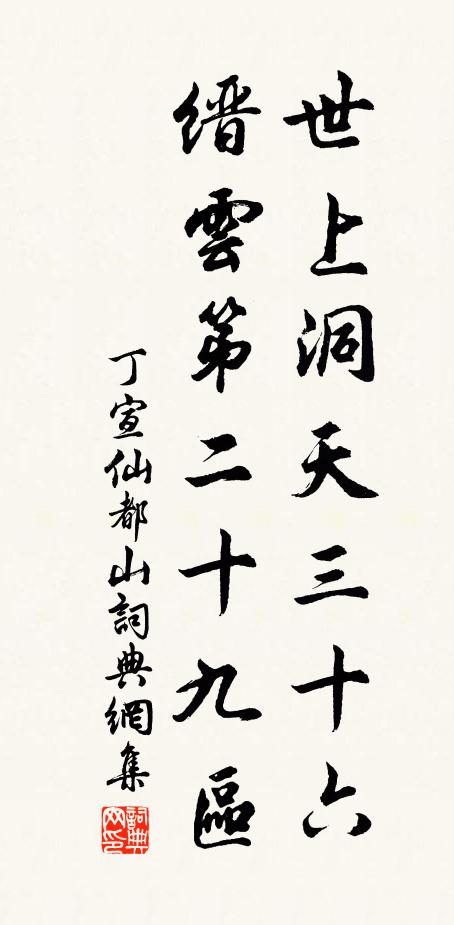 世上洞天三十六
缙雲第二十九區
丁宣仙都山詞典網集
詞典网印